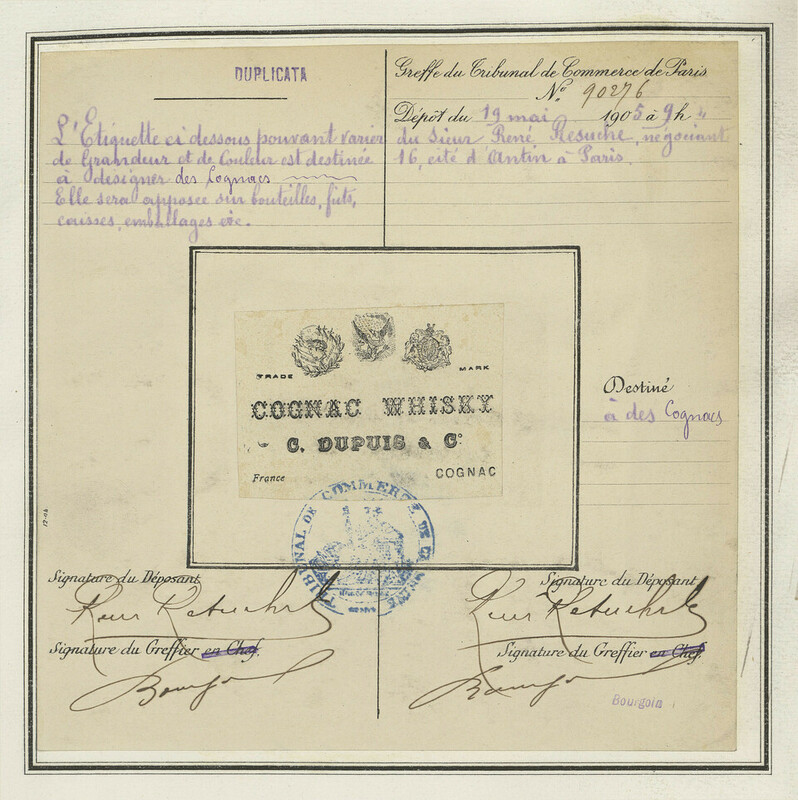 DUPLICATA
L'Etiquette ci dessous pouvant varier
de Grandeur et de Couleur est destinée
à désigner des Cognacs
Elle sera apposée sur bouteilles, futs,
caisses, emballages etc.
Greffe du Tribunal de Commerce de Paris
No 90276
Dépôt du 19 mai 1905 à 9h "
du Sieur René Resuche, négociant
16, cité d'Antin à Paris.
TRADE MARK
COGNAC WHISKY
C. DUPUIS & Co
France COGNAC
Destiné
à des Cognacs
TRIBUNAL DE COMMERCE DE
12-04
Signature du Déposant
Signature du Greffier en Chef.
Bourgoin
Signature du Déposant
Signature du Greffier en Chef.
Bourgoin
Bourgoin